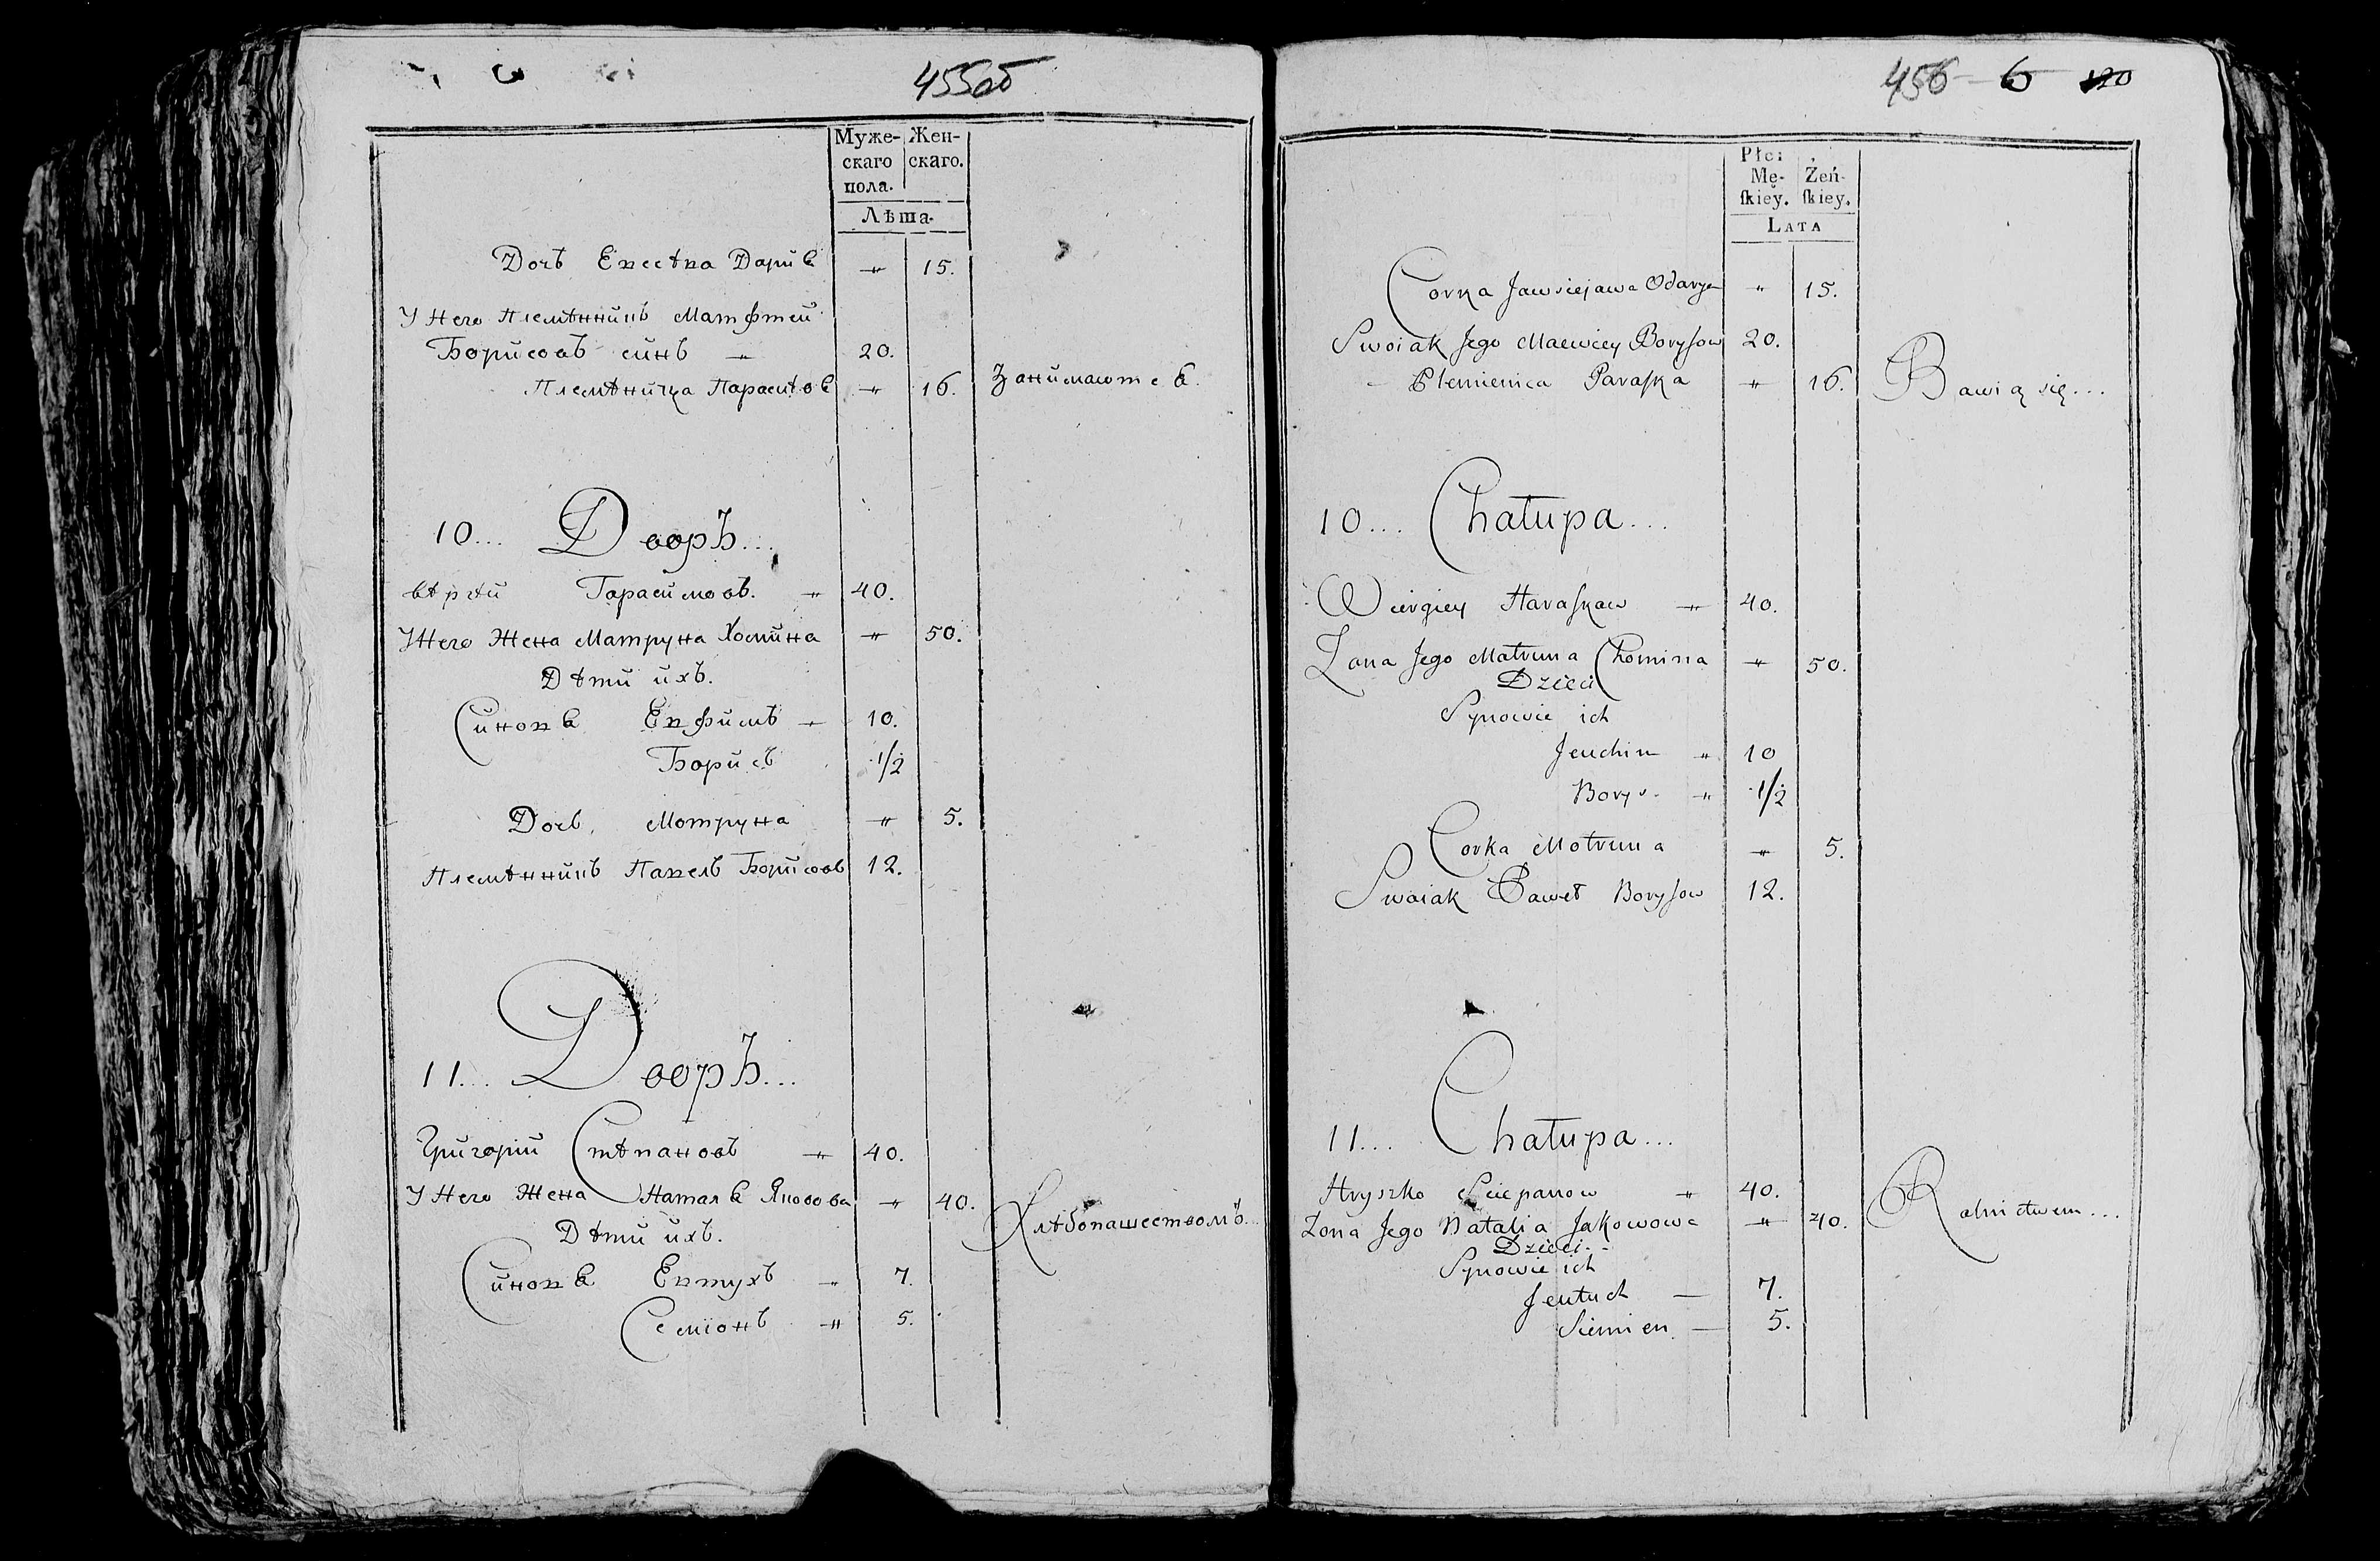 455об
Муже- Жен-
скаго скаго.
пола.
Лѣта.
Дочь Евсѣева Дарив — 15.
У Него племѣнникъ Матфтей
Борисовъ синъ — 20.
Племѣница Параскв — 16. Занимаютсь.
10... Дворъ...
Гарасимовъ. — 40.
У Него Жена Матруна Хомина — 50.
Дѣти ихъ.
Синовь Евфимъ — 10.
Борисъ 1/2
Дочь, Мотруна — 5.
Племѣнникъ Павелъ Борисовъ 12.
11... Дворъ...
Григорій Стѣпановъ — 40.
У Него Жена Наталь Яковова — 40. Хлѣбопашествомъ...
Дѣти ихъ.
Синовь Евтухъ — 7.
Семіонъ — 5.
456 6 120
Płci
Mę- Żeń-
ſkiey. ſkiey.
LATA
Corka Jawsiejawa Odarya — 15.
Swoiak Jego Maewiey Borysow 20.
Plemienica Paraſka — 16. Bawią się...
10... Chałupa...
Wiergiey Haraſkaw — 40.
Zona Jego Matruna Chomina — 50.
Dzieci
Synowie ich
Jeuchim — 10
Borys — 1/2
Corka Motruna — 5.
Swaiak Paweł Boryſow 12.
11... Chałupa...
Hryszko Sciepanow — 40.
Zona Jego Natalia Jakowowa — 40. Rolnictwem...
Dzieci
Synowie ich
Jeutuch — 7.
Siemien — 5.